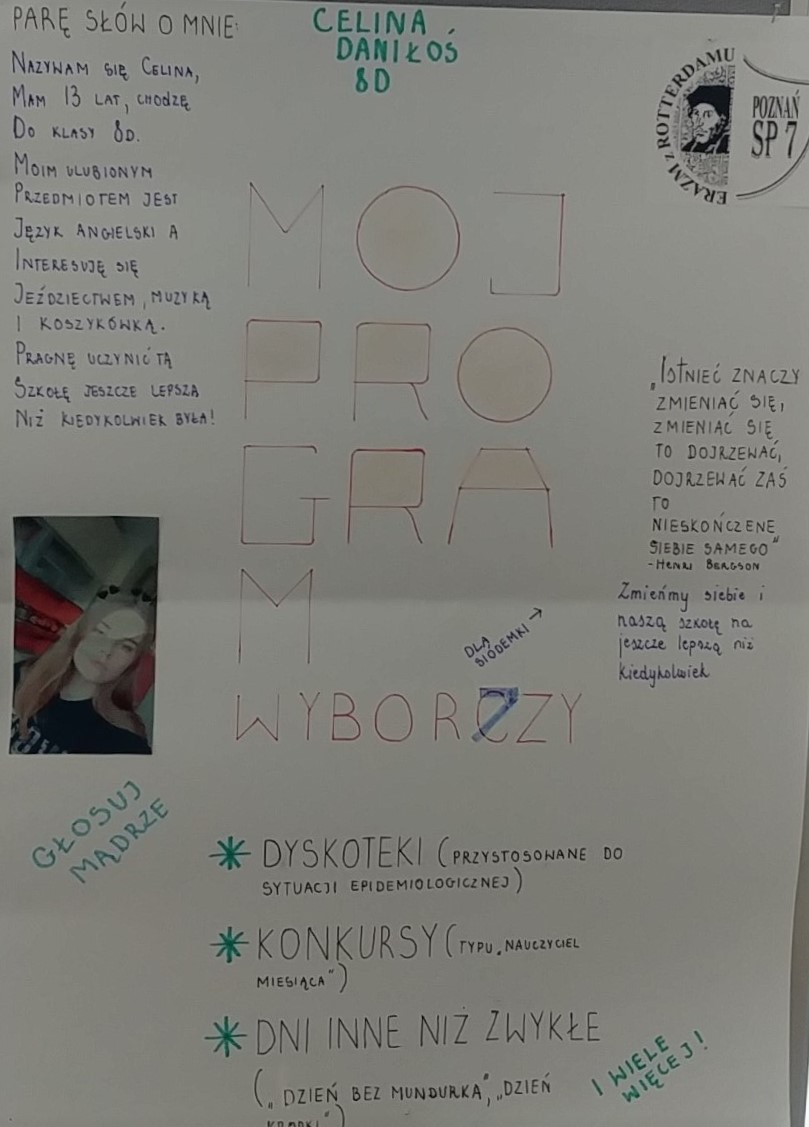 PARĘ SŁÓW O MNIE:
NAZYWAM SIĘ CELINA,
MAM 13 LAT, CHODZĘ
DO KLASY 8D.
MOIM ULUBIONYM
PRZEDMIOTEM JEST
JĘZYK ANGIELSKI A
INTERESUJĘ SIĘ
JEŹDZIECTWEM, MUZYKĄ
I KOSZYKÓWKĄ.
PRAGNĘ UCZYNIĆ TĄ
SZKOŁĘ JESZCZE LEPSZĄ
NIŻ KIEDYKOLWIEK BYŁA!
CELINA
DANIŁOŚ
8D
ERAZM z ROTTERDAMU
POZNAŃ
SP 7
MOJ
PRO
GRA
M
WYBORCZY
DLA
SIÓDEMKI →
„ISTNIEĆ ZNACZY
ZMIENIAĆ SIĘ,
ZMIENIAĆ SIĘ
TO DOJRZEWAĆ,
DOJRZEWAĆ ZAŚ
TO
NIESKOŃCZENE
SIEBIE SAMEGO"
- HENRI BERGSON
Zmieńmy siebie i
naszą szkołę na
jeszcze lepszą niż
kiedykolwiek
GŁOSUJ
MĄDRZE
DYSKOTEKI (PRZYSTOSOWANE DO
SYTUACJI EPIDEMIOLOGICZNEJ)
KONKURSY (TYPU „NAUCZYCIEL
MIESIĄCA")
DNI INNE NIŻ ZWYKŁE
(„DZIEŃ BEZ MUNDURKA", „DZIEŃ
I WIELE
WIĘCEJ!